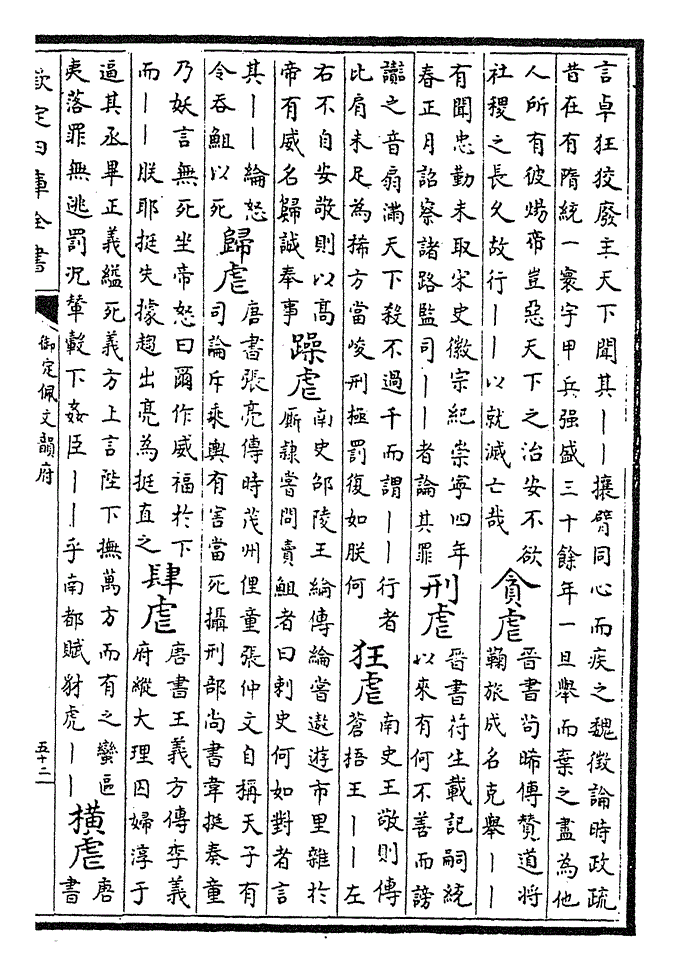 言卓狂狡廢主天下聞其——攘臂同心而疾之魏徵論時政疏
昔在有隋統一寰宇甲兵强盛三十餘年一旦舉而棄之盡為他
人所有彼煬帝豈惡天下之治安不欲
社稷之長久故行——以就滅亡哉
貪虐
晉書苟晞傳贊道將
鞠旅成名克舉——
有聞忠勤未取宋史徽宗紀崇寧四年
春正月詔察諸路監司——者論其罪
刑虐
晉書苻生載記嗣統
以來有何不善而謗
讟之音扇滿天下殺不過千而謂——行者
比肩未足為稀方當峻刑極罰復如朕何
狂虐
南史王敬則傳
蒼梧王——左
右不自安敬則以高
帝有威名歸誠奉事
躁虐
南史邵陵王綸傳綸嘗遨遊市里雜於
廝隸嘗問賣䱇者曰刺史何如對者言
其——綸怒
令吞䱇以死
歸虐
唐書張亮傳時茂州俚童張仲文自稱天子有
司論斥乘輿有害當死攝刑部尚書韋挺奏童
乃妖言無死坐帝怒曰爾作威福於下
而——朕耶挺失據趨出亮為挺直之
肆虐
唐書王義方傳李義
府縱大理囚婦淳于
逼其丞畢正義縊死義方上言陛下撫萬方而有之蠻區
夷落罪無逃罰况輦轂下姦臣——乎南都賦豺虎——
横虐
唐
書
欽定四庫全書
御定佩文韻府
五十二